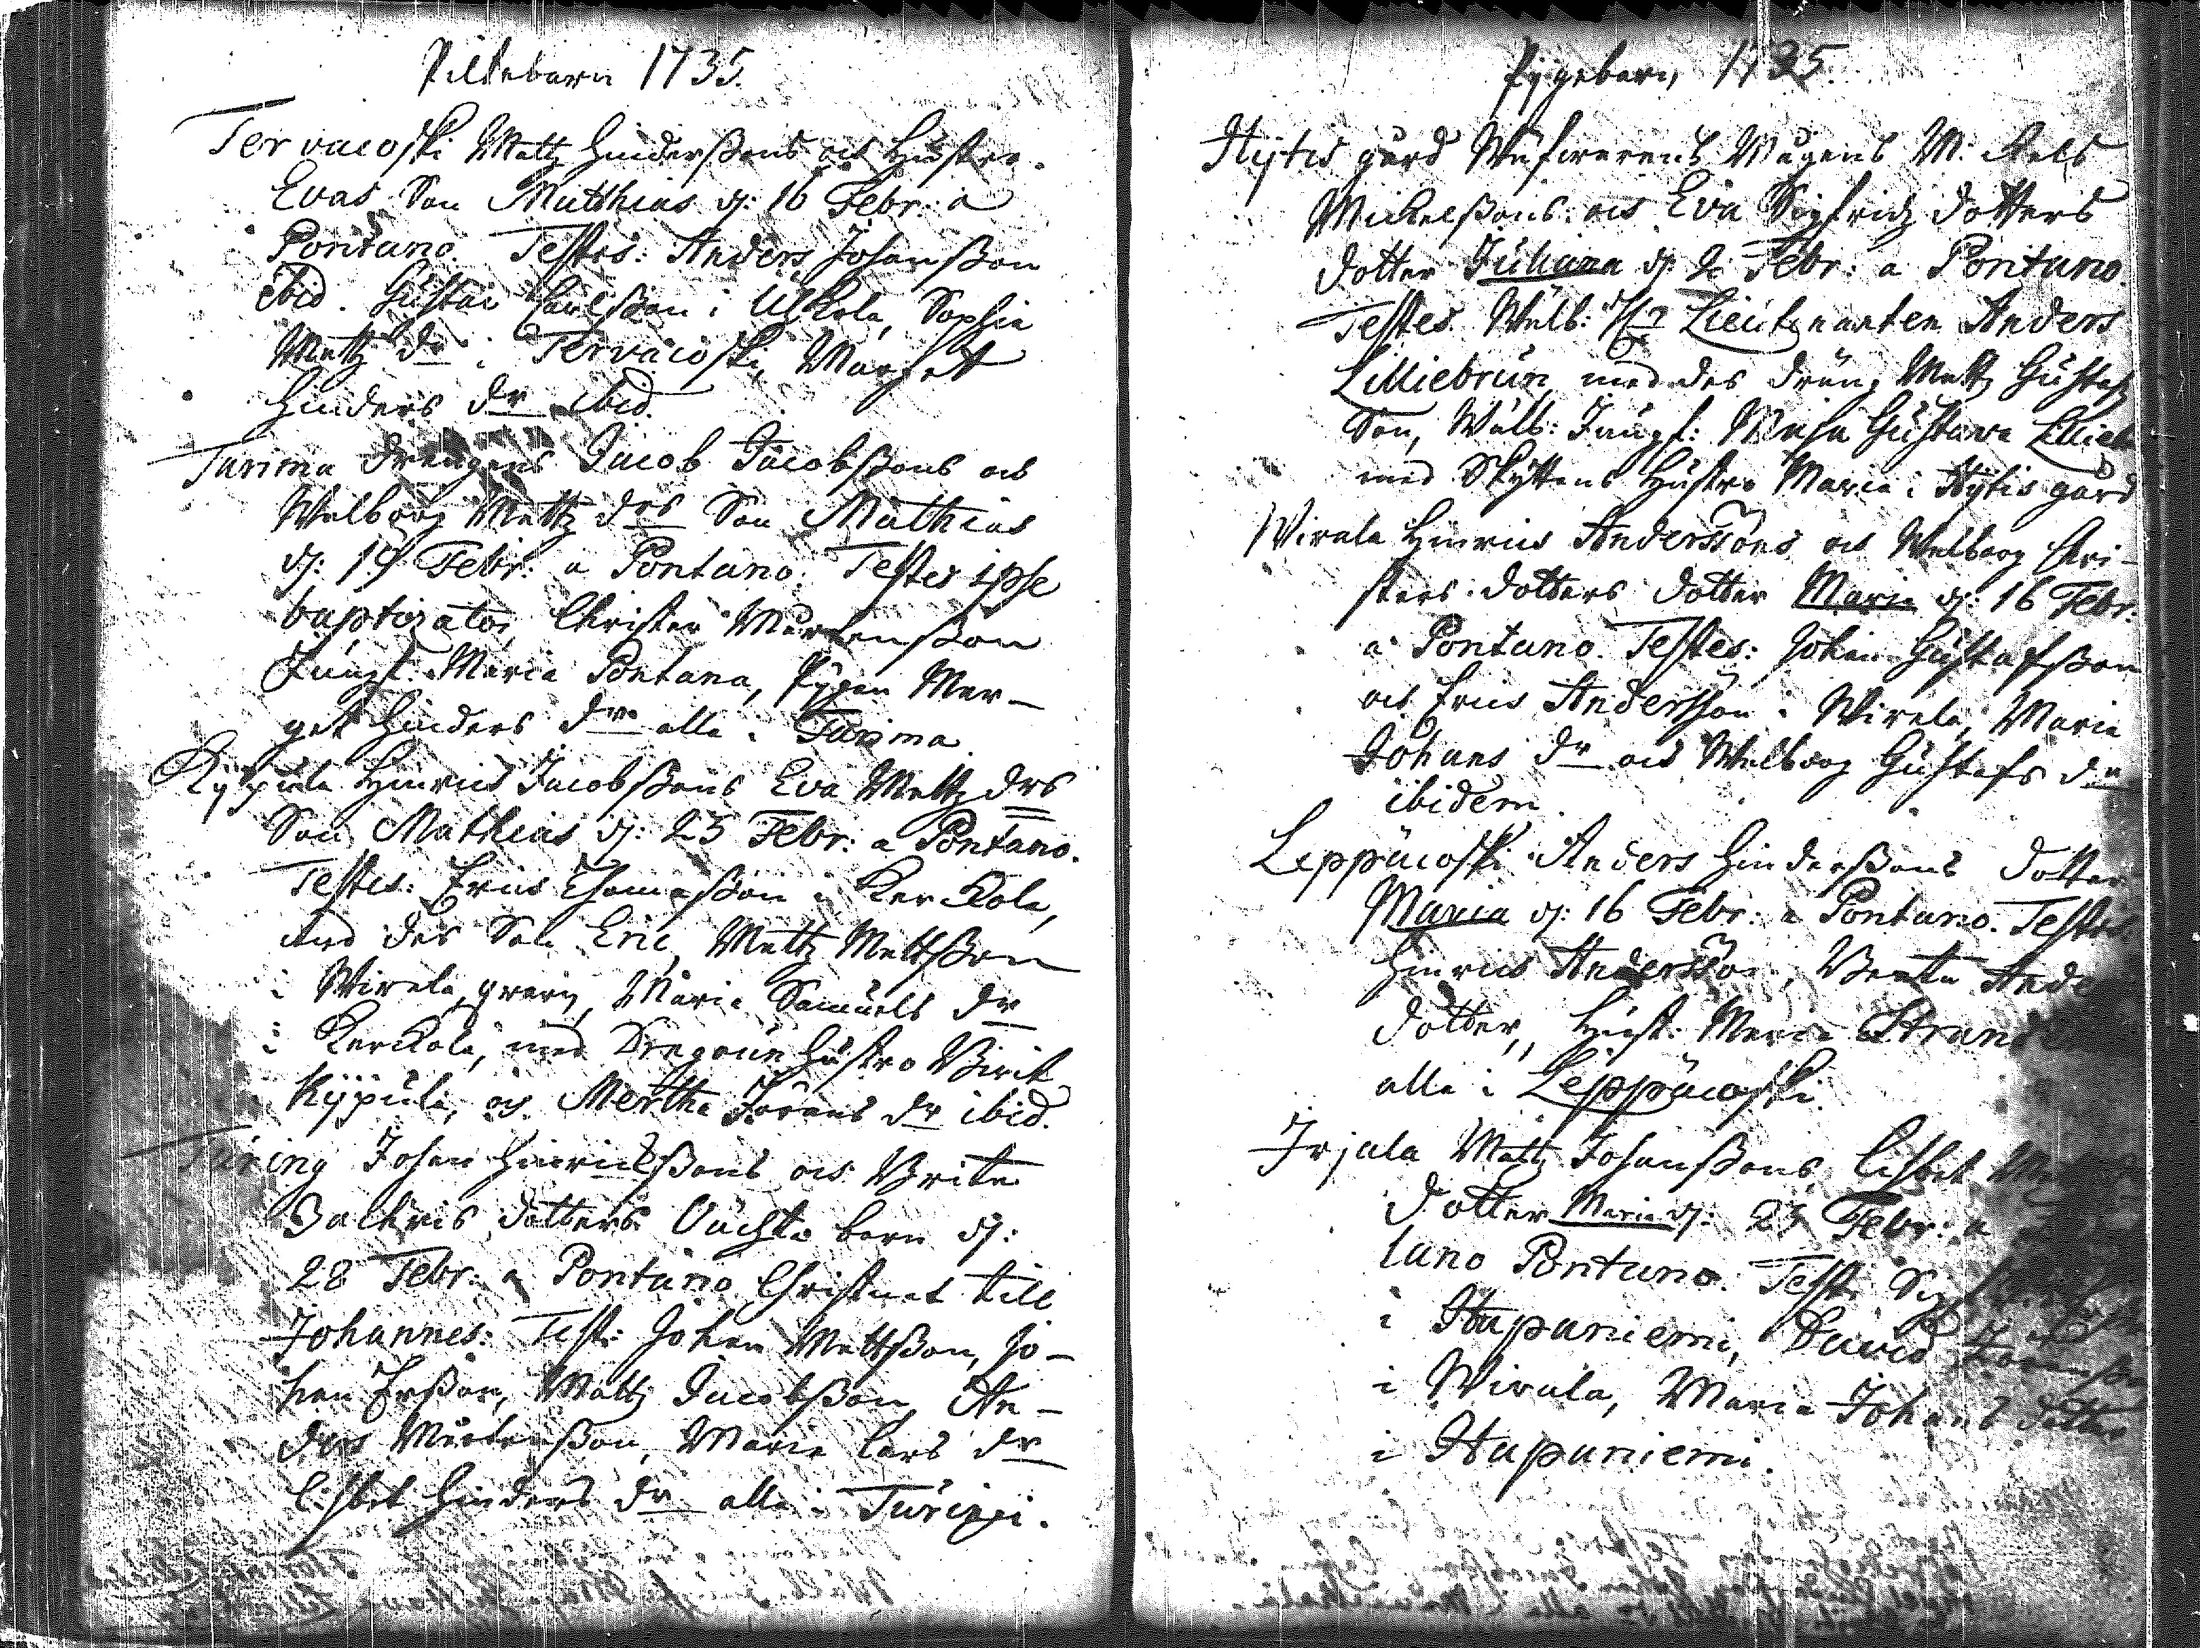 Piltebarn 1735.
Tervacoski Matz Hindersßons och Hustro
Evas Son Matthias d: 16 Febr: a
Pontano. Testes: Anders Johansßon
ibid. Gustav Carlsßon i Uskola, Sophia
Matz dr i Tervacoski, Marget
Hinders dr ibid.
Turima Drengens Jacob Jacobsßons och
Walborg Matz drs Son Mathias
d: 19 Febr: a Pontano. Testes ipse
baptizator, Christer Mårtensßon
Jungf: Maria Pontana, Pigan Mar-
get Hinders dr alla i Turima.
Kypula Hinrics Jacobsßons Eva Matz drs
Son Mathias d: 23 Febr: a Pontano.
Testes: Erics Thomasßon i Kerckola,
med des Son Eric, Matz Mattsßon
i Wirala, Maria Samuels dr
i Kerckola, med Hustro Birit
Kypula, och Mertha Jörans dr ibid.
Turing Johan Hinricsßons och Brita
Zachris dotters Oächta barn d:
28 Febr: a Pontano Christnat till
Johannes: Test: Johan Mattsßon, Jo-
han Ersßon, Matz Jacobsßon, An-
ders Mårtensßon, Maria Lars dr
Lisbet Hinders dr alla i Turingi.
Pygebarn 1735.
Hytis gård
Mickelsßons och Eva Sigfridz dotters
dotter Juliana d: 2 Febr: a Pontano.
Testes Wälb: Hr Lieutenanten Anders
Lilliebrun, med des dräng Matz Gustafz
Son, Wälb: Jungf: Maja Gustava Lillieb
med Skyttens Hustro Maria i Hytis gård
Wirala Hinrics Anderssons och Walborg Chri-
sters dotters dotter Maria d: 16 Febr:
a Pontano. Testes: Johan Gustafsßon
och Erics Andersson i Wirala, Maria
Johans dr och Walborg Gustafs dr
ibidem.
Leppäcoski Anders Hindersßons dotter
Maria d: 16 Febr: a Pontano. Testes
Hinrics Andersson, Beata Ande
dotter, Hust: Maria Strand
alla i Leppäcoski.
Irjala Matz Johansßons, Lisbet
dotter Maria d: 23 Febr: a
tano Pontano. Test:
i Hapaniemi, David
i Wirala, Maria Johans dotter
i Hapaniemi.